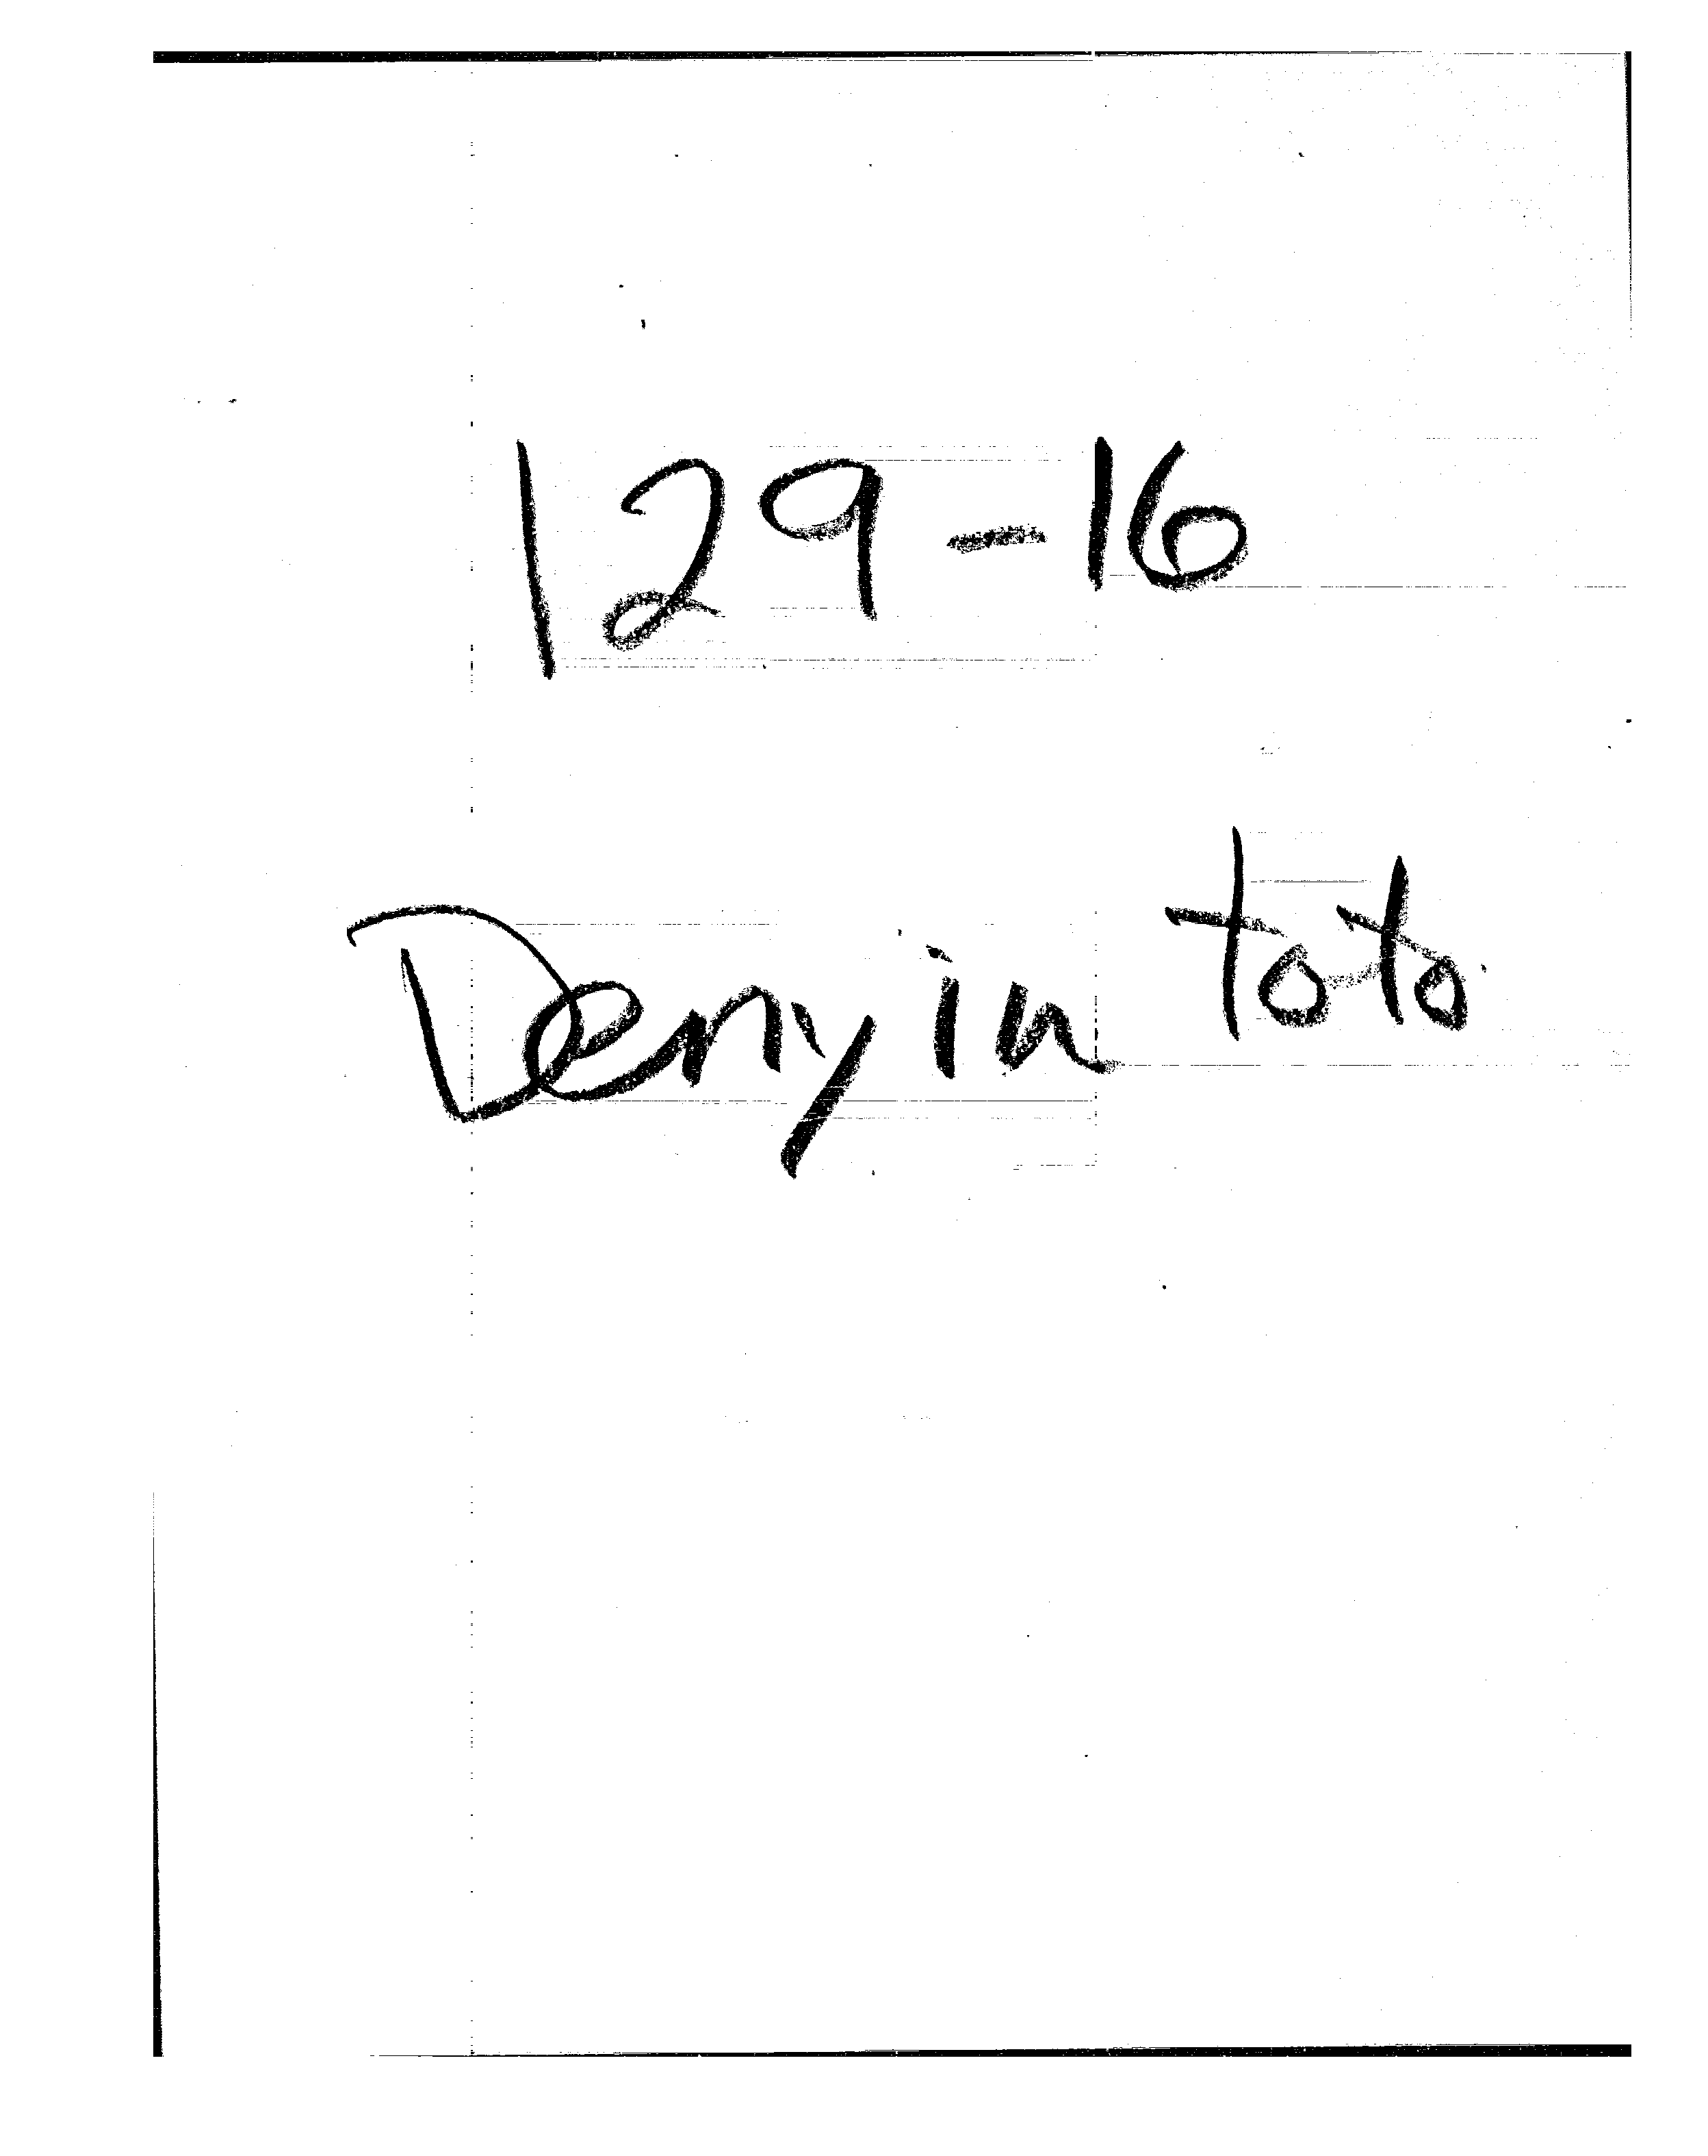 129-16
Deny in toto